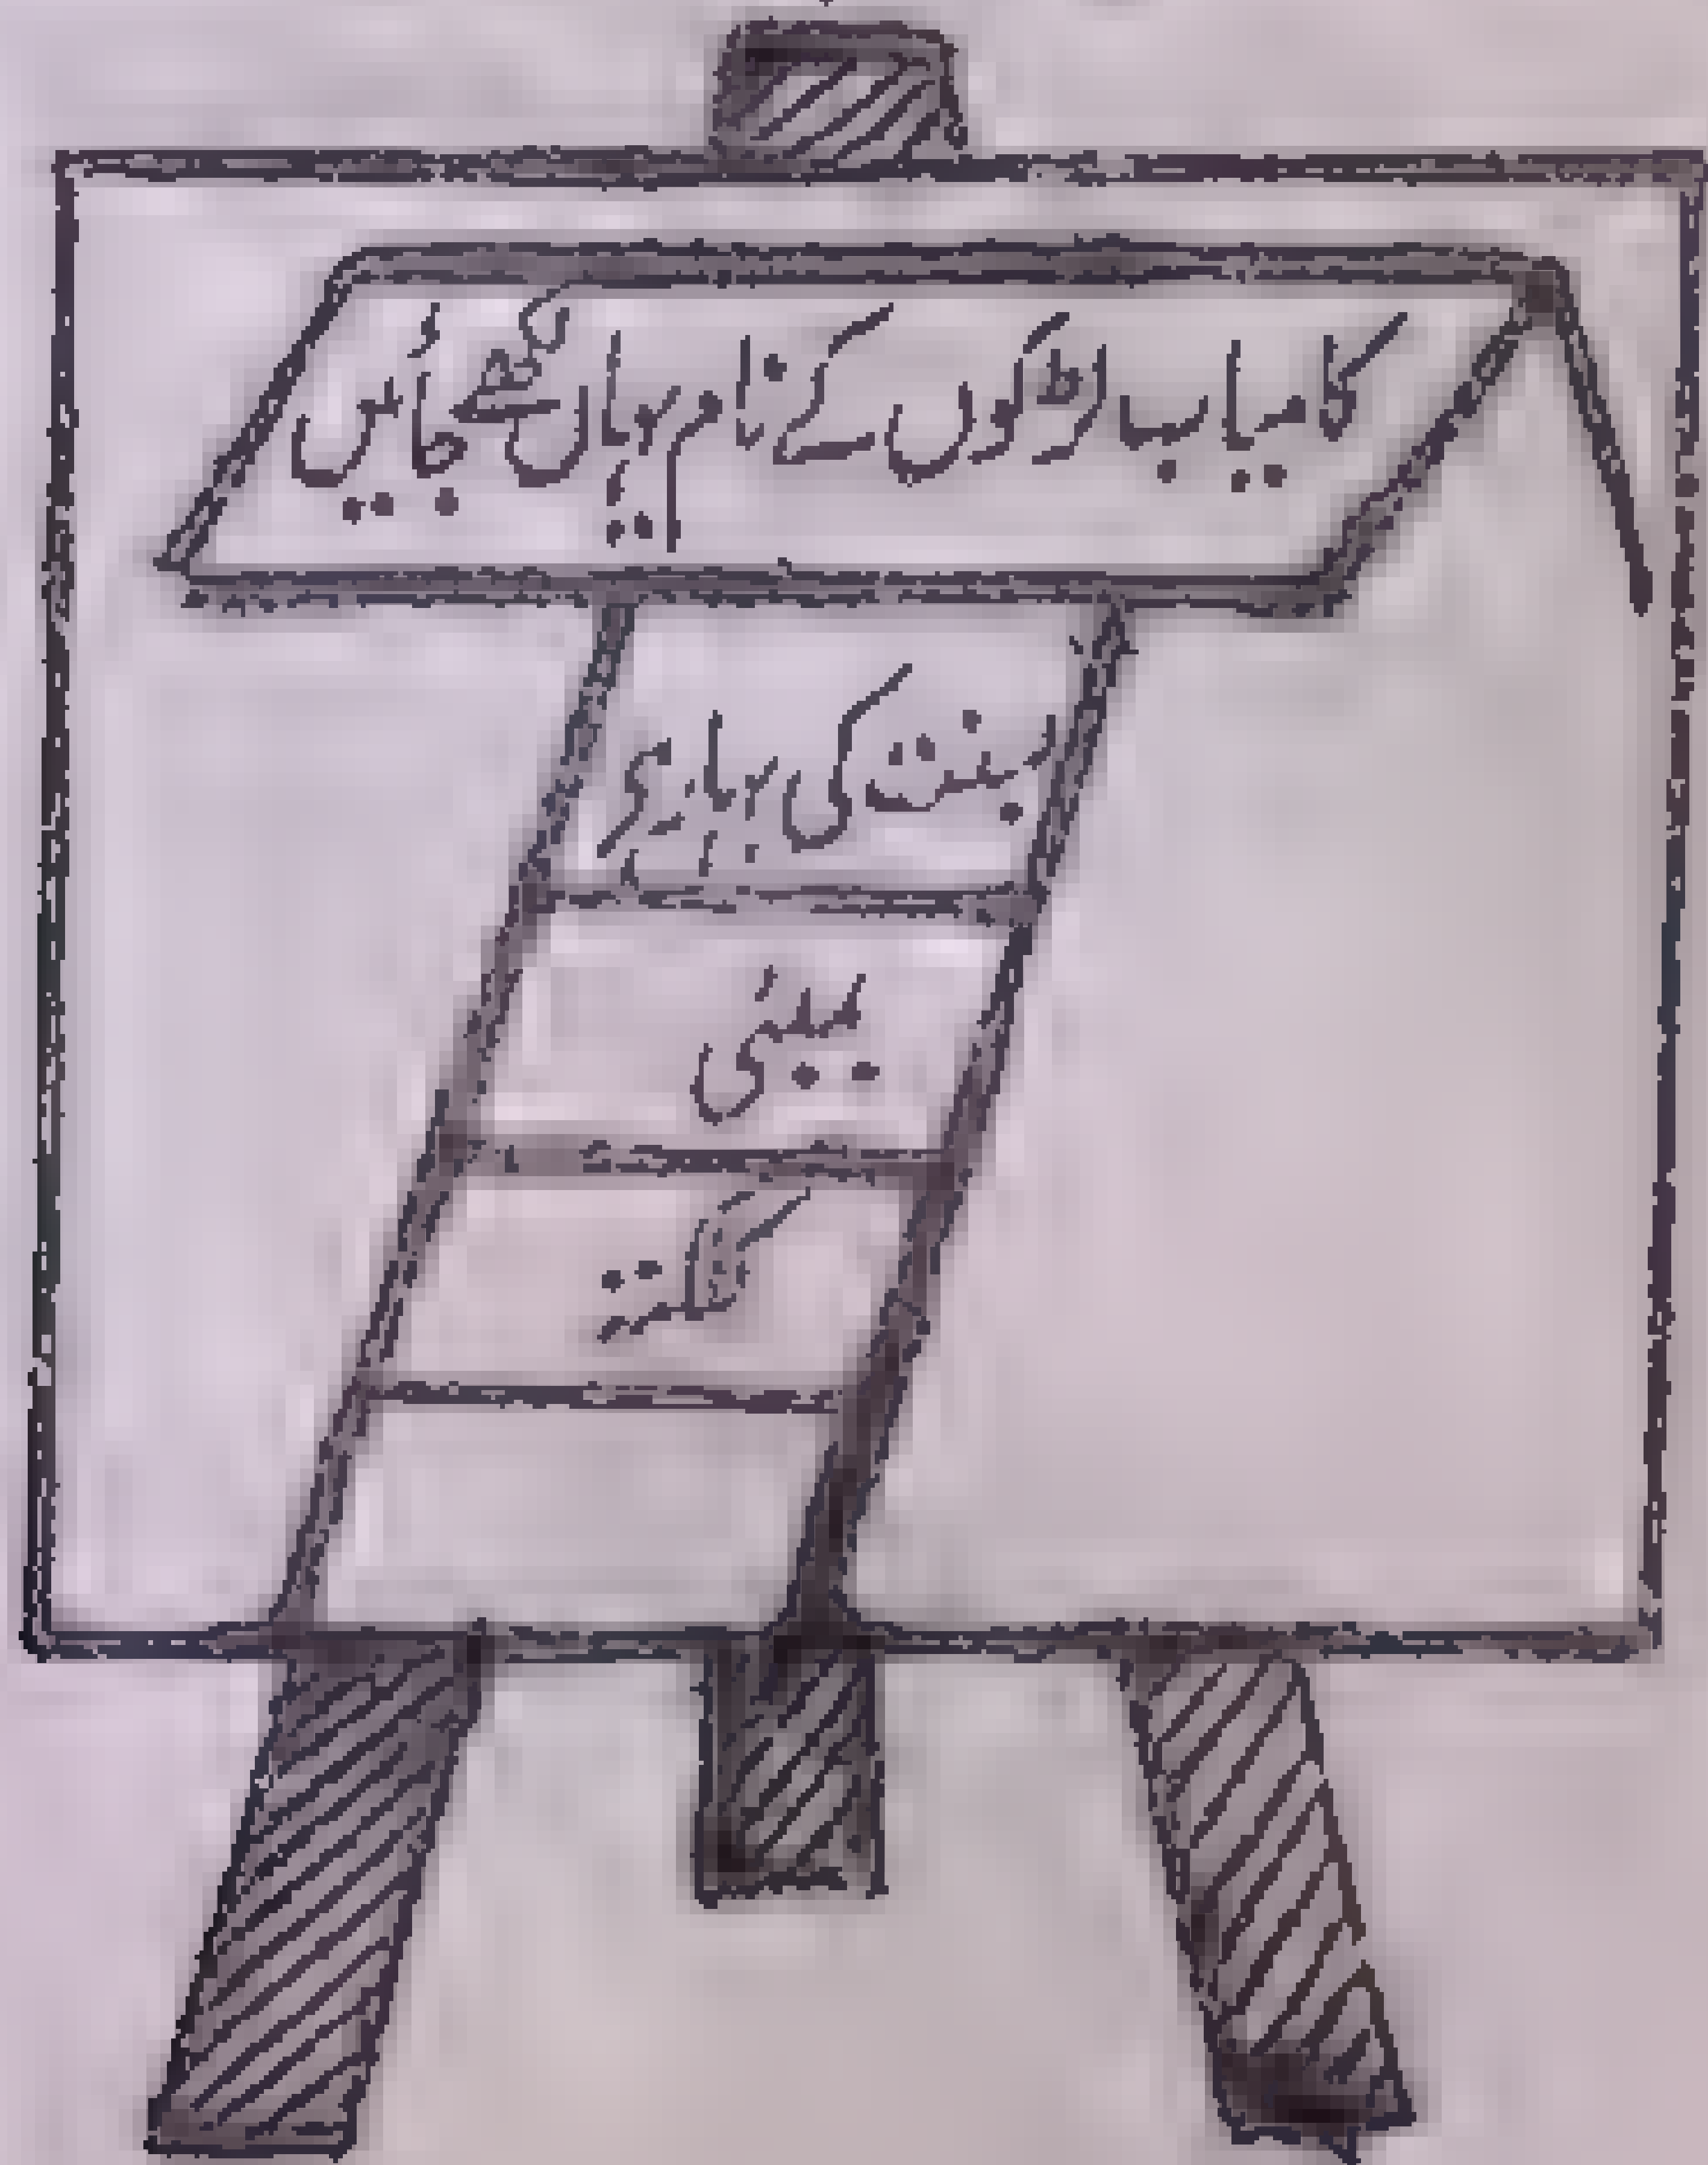 کامیاب لڑکوں کے نام یہاں لکھے جائیں
بسنت کی بہار ہے
بمبئی
کلکتہ